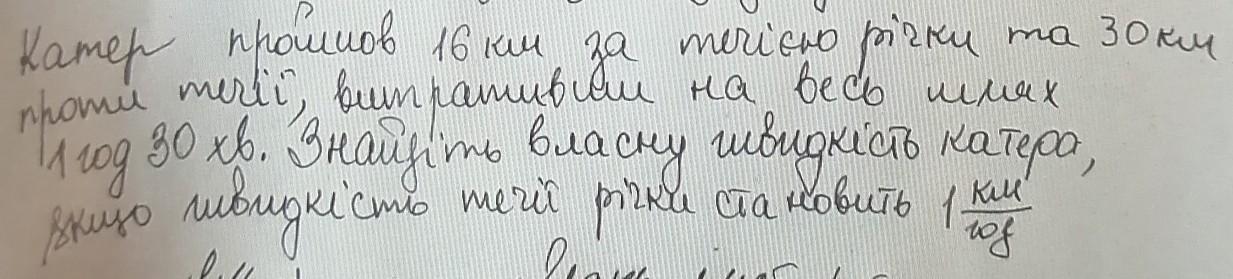 Катер пройшов 16 км за течією річки та 30 км
проти течії, витративши на весь шлях
1 год 30 хв. Знайдіть власну швидкість катера,
якщо швидкість течії річки становить 1 км/год